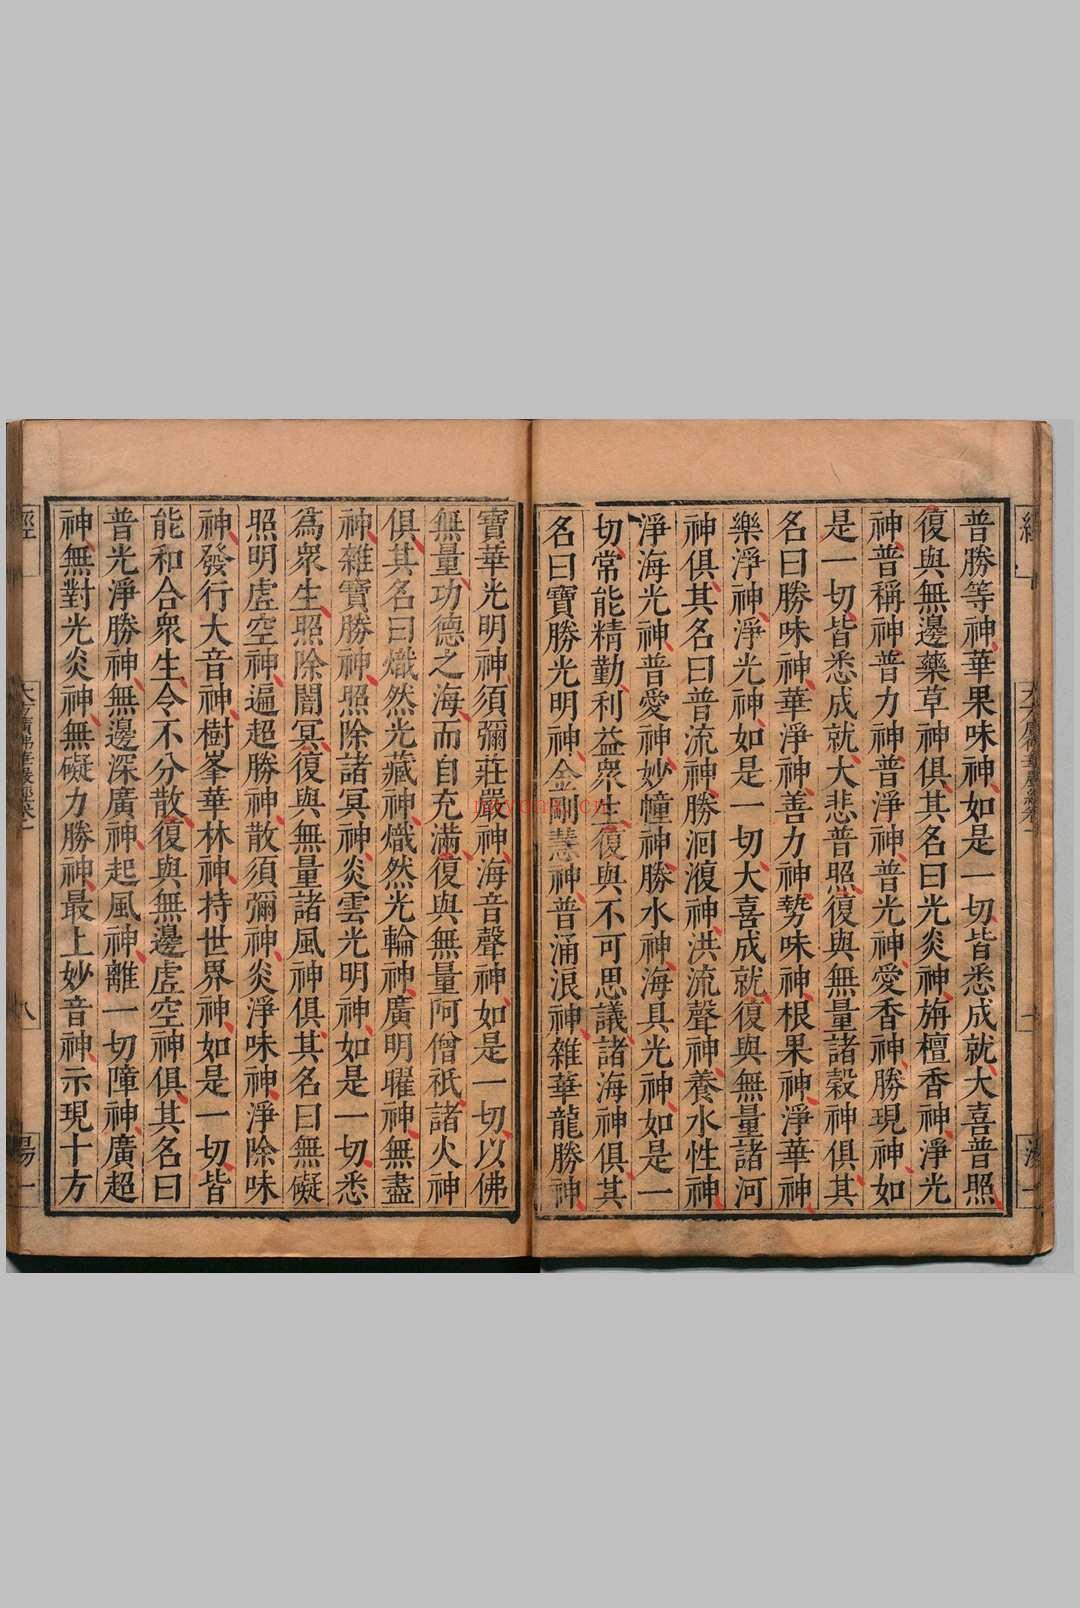 普勝等神華果味神如是一切皆悉成就大喜普照
復與無邊藥草神俱其名曰光炎神旃檀香神淨光
神普稱神普力神普淨神普光神愛香神勝現神如
是一切皆悉成就大悲普照復與無量諸穀神俱其
名曰勝味神華淨神善力神勢味神根果神淨華神
樂淨神淨光神如是一切大喜成就復與無量諸河
神俱其名曰普流神勝洄澓神洪流聲神養水性神
淨海光神普愛神妙幢神勝水神海具光神如是一
切常能精勤利益衆生復與不可思議諸海神俱其
名曰寶勝光明神金剛慧神普涌浪神雜華龍勝神
寶華光明神須彌莊嚴神海音聲神如是一切以佛
無量功德之海而自充滿復與無量阿僧祇諸火神
俱其名曰熾然光藏神熾然光輪神廣明曜神無盡
神雜寶勝神照除諸冥神炎雲光明神如是一切悉
爲衆生照除闇冥復與無量諸風神俱其名曰無礙
照明虛空神遍超勝神散須彌神炎淨味神淨除味
神發行大音神樹峯華林神持世界神如是一切皆
能和合衆生令不分散復與無邊虛空神俱其名曰
普光淨勝神無邊深廣神起風神離一切障神廣超
神無對光炎神無礙力勝神最上妙音神示現十方
經
大方廣佛華嚴經卷一
八
湯一
mxyong.cn